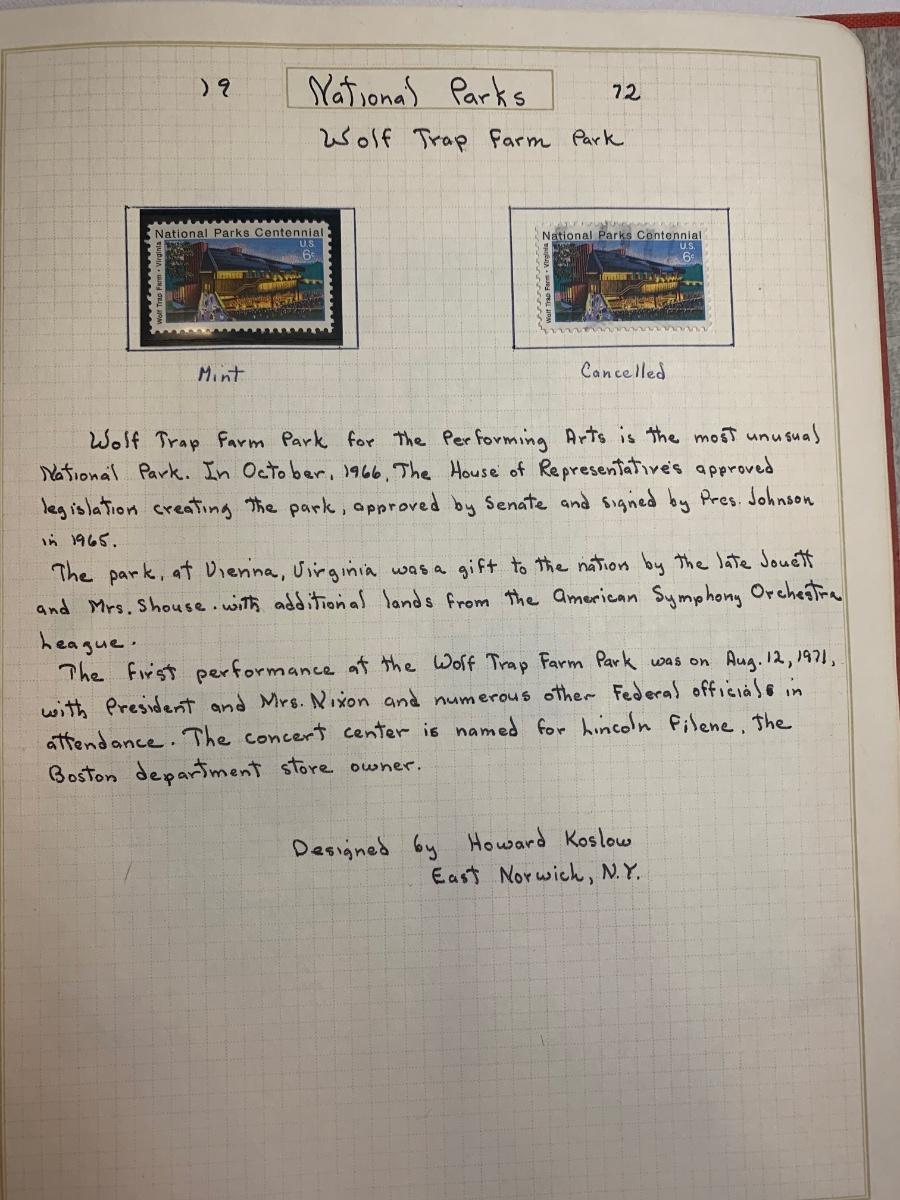 19 National Parks 72
Wolf Trap Farm Park
National Parks Centennial
U.S.
6c
Wolf Trap Farm • Virginia
National Parks Centennial
U.S.
6c
Wolf Trap Farm • Virginia
Mint
Cancelled
Wolf Trap Farm Park for the Performing Arts is the most unusual
National Park. In October, 1966, The House of Representative's approved
legislation creating the park, approved by Senate and signed by Pres. Johnson
in 1965.
The park, at Vienna, Virginia was a gift to the nation by the late Jouett
and Mrs. Shouse. with additional lands from the American Symphony Orchestra
League.
The first performance at the Wolf Trap Farm Park was on Aug. 12, 1971,
with President and Mrs. Nixon and numerous other Federal officials in
attendance. The concert center is named for Lincoln Filene, the
Boston department store owner.
Designed by Howard Koslow
East Norwich, N.Y.